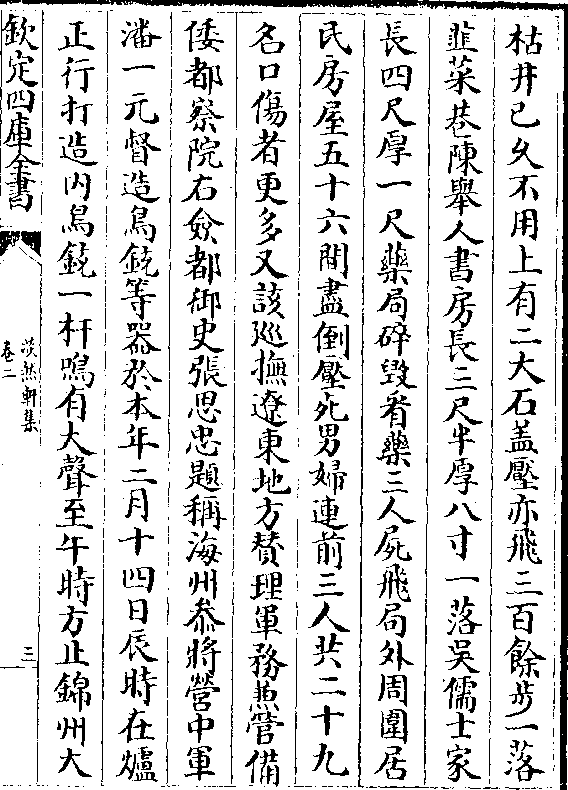 枯井已久不用上有二大石蓋壓亦飛三百餘步一落
韮菜巷陳舉人書房長三尺半厚八寸一落吳儒士家
長四尺厚一尺藥局碎毀看藥三人屍飛局外周圍居
民房屋五十六間盡倒壓死男婦連前三人共二十九
名口傷者更多又該巡撫遼東地方賛理軍務兼管備
倭都察院右僉都御史張思忠題稱海州叅將營中軍
潘一元督造鳥銃等器於本年二月十四日辰時在爐
正行打造内鳥銃一杆鳴有大聲至午時方止錦州大
欽定四庫全書
茨然軒集
卷二
三